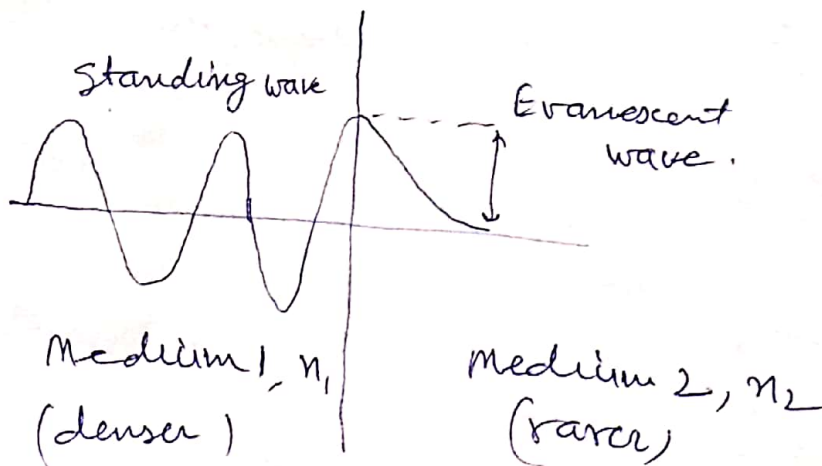 Standing wave
Evanescent
wave.
Medium 1, n1
(denser)
Medium 2, n2
(rarer)